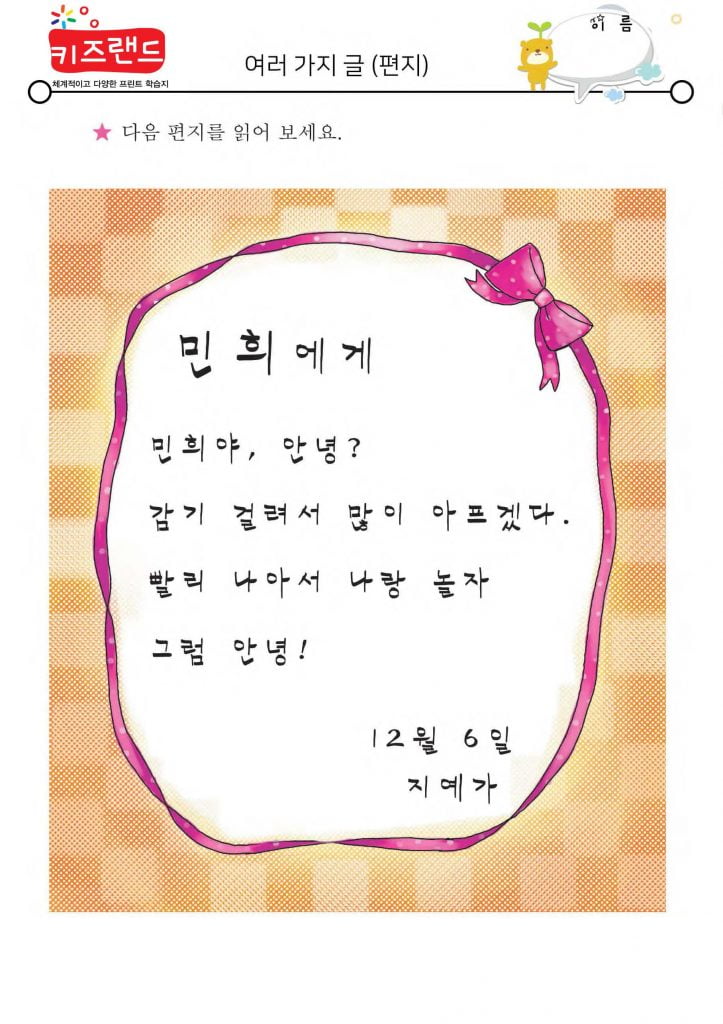 키즈랜드
체계적이고 다양한 프린트 학습지
여러 가지 글 (편지)
이 름
★ 다음 편지를 읽어 보세요.
민희에게
민희야, 안녕?
감기 걸려서 많이 아프겠다.
빨리 나아서 나랑 놀자
그럼 안녕!
12월 6일
지예가